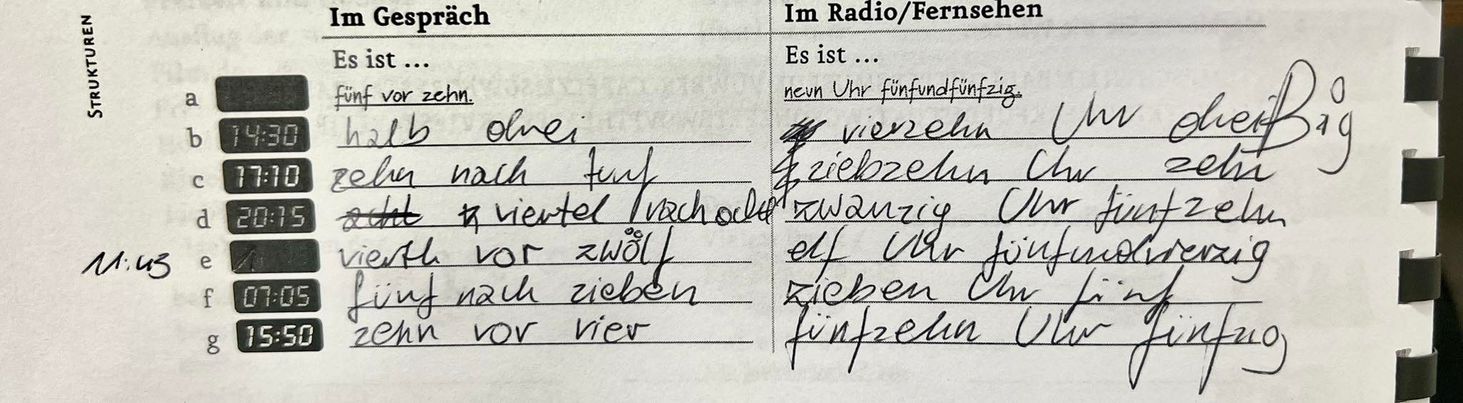 STRUKTUREN
Im Gespräch Im Radio/Fernsehen
Es ist ... Es ist ...
a fünf vor zehn. neun Uhr fünfundfünfzig.
b 14:30 halb drei vierzehn Uhr dreißig
c 17:10 zehn nach funf ziebzehn Uhr zehn
d 20:15 acht viertel nach acht zwanzig Uhr fünfzehn
11:45 e viertl vor zwölf elf Uhr fünfundvierzig
f 07:05 fünf nach zieben zieben Uhr fünf
g 15:50 zehn vor vier fünfzehn Uhr fünfzig